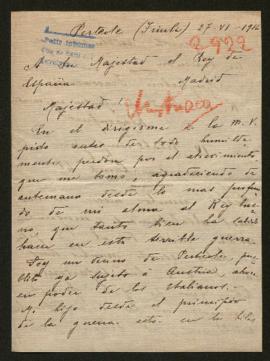 Perteole (Friuli) 27-VI-1916
2922
A Su Majestad el Rey de
España Madrid
Majestad!
En el dirigirme a la M.V.
pido antes de todo humilde
mente perdon por el atrevimiento
que me tomo, agradeciendo de
antemano desde lo mas profun
do de mi alma al Rey bue
no, que tanto bien ha sabido
hacer en esta terrible guerra.
Soy un de Perteole, pue
blo ya sujeto á Austria, ahora
en poder de los italianos.
Mi hijo desde el principio
de la guerra esta en las filas